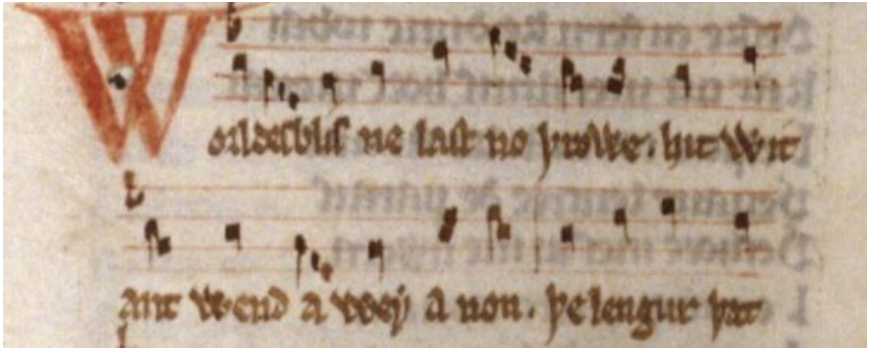 Worldesblis ne last no þrowe. hit wit
ant wend a wey a non. þe lengur þat